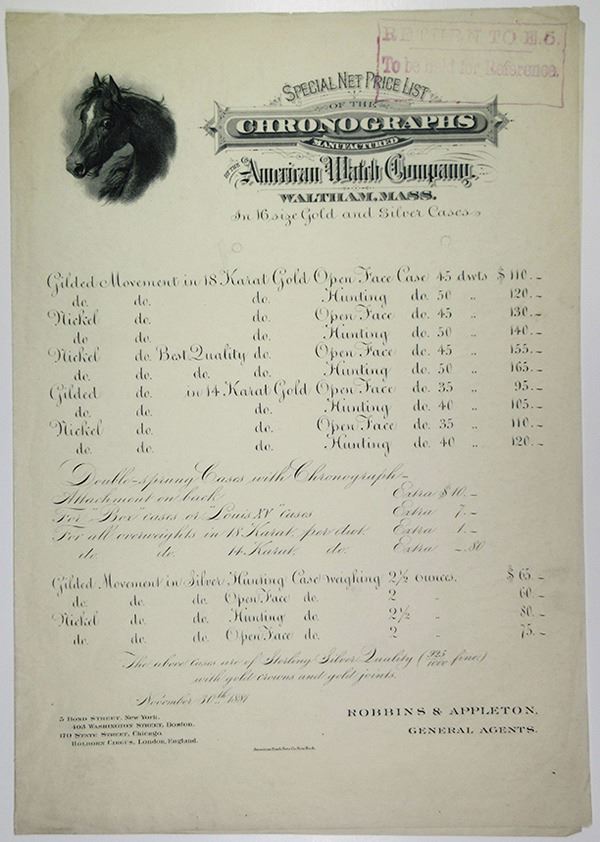 RETURN TO E.S.
To be held for Reference.
SPECIAL NET PRICE LIST
OF THE
CHRONOGRAPHS
MANUFACTURED
BY THE American Watch Company,
WALTHAM, MASS.
In 16 size Gold and Silver Cases
Gilded Movement in 18 Karat Gold Open Face Case 45 dwts $110.–
do. do. do. Hunting do. 50 " 120.–
Nickel do. do. Open Face do. 45 " 130.–
do. do. do. Hunting do. 50 " 140.–
Nickel do. Best Quality do. Open Face do. 45 " 155.–
do. do. do. do. Hunting do. 50 " 165.–
Gilded do. in 14 Karat Gold Open Face do. 35 " 95.–
do. do. do. Hunting do. 40 " 105.–
Nickel do. do. Open Face do. 35 " 110.–
do. do. do. Hunting do. 40 " 120.–
Double-sprung Cases with Chronograph–
Attachment on back Extra $10.–
For "Box" cases or "Louis XV" cases Extra 7.–
For all overweights in 18 Karat, per dwt. Extra 1.–
do. do. 14 Karat. do. Extra –.80
Gilded Movement in Silver Hunting Case weighing 2½ ounces. $65.–
do. do. do. Open Face do. 2 " 60.–
Nickel do. do. Hunting do. 2½ " 80.–
do. do. do. Open Face do. 2 " 75.–
The above cases are of Sterling Silver Quality (925/1000 fine)
with gold crowns and gold joints.
November 30th 1887
5 BOND STREET, New York.
403 WASHINGTON STREET, Boston.
170 STATE STREET, Chicago.
HOLBORN CIRCUS, London, England.
ROBBINS & APPLETON,
GENERAL AGENTS.
American Bank Note Co. New York.